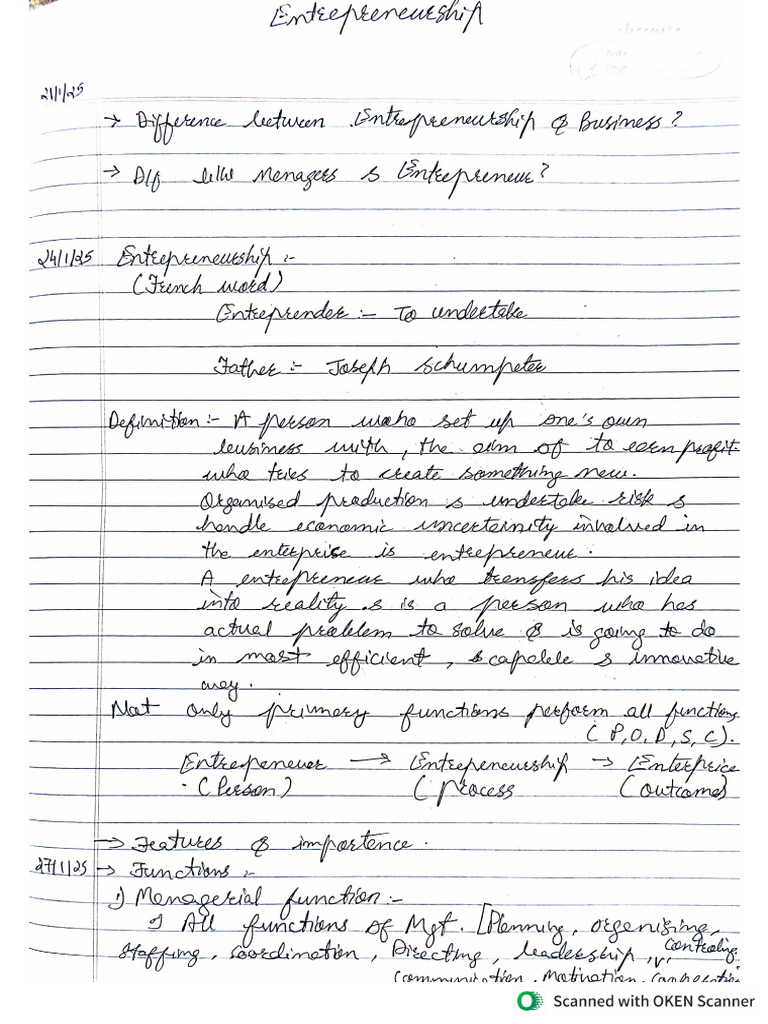 Entrepreneurship
21/1/25
→ Difference between Entrepreneurship & Business?
→ D/f b/w Menagers & Entrepreneur?
24/1/25 Entrepreneurship :-
(French word)
Entreprender :- To undertake
Father :- Joseph Schumpeter
Definition :- A person who set up one's own
business with, the aim of to earn profit
who tries to create something new.
Organised production & undertake risk &
handle economic uncerternity involved in
the enterprise is entrepreneur.
A entrepreneur who transfers his idea
into reality & is a person who has
actual problem to solve & is going to do
in most efficient, & capable & innovative
way.
Not only primary functions perform all functions
(P,O,D,S,C).
Entrepeneuer → Entrepeneurship → Enterprice
(Person) (Process (outcome)
→ Features & importence.
27/1/25 → Functions :-
1) Menagerial function :-
All functions of Mgt. [Planning, organising,
staffing, coordination, Directing, leadership, controling
communication, Motivation,
Scanned with OKEN Scanner